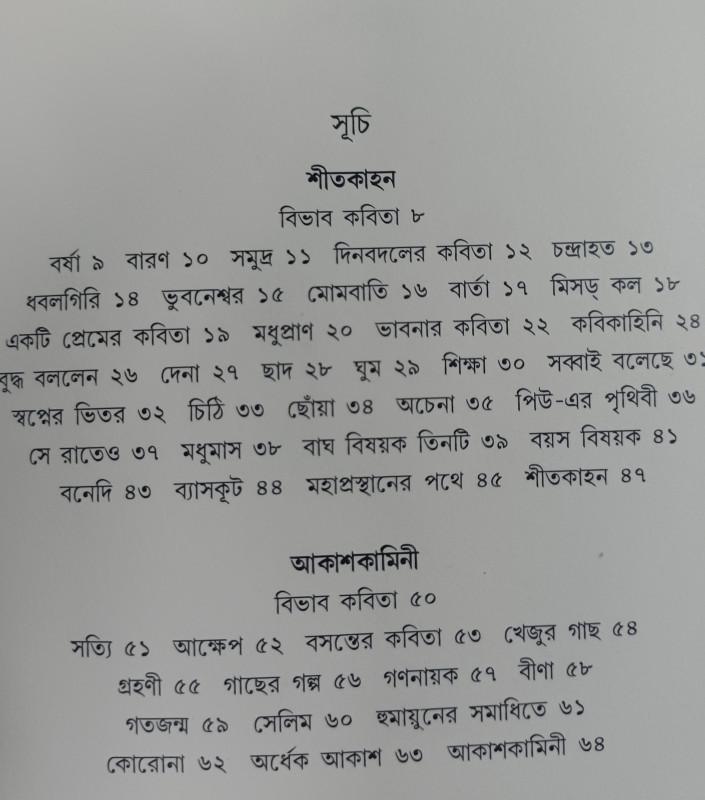 সূচি
শীতকাহন
বিভাব কবিতা ৮
বর্ষা ৯ বারণ ১০ সমুদ্র ১১ দিনবদলের কবিতা ১২ চন্দ্রাহত ১৩
ধবলগিরি ১৪ ভুবনেশ্বর ১৫ মোমবাতি ১৬ বার্তা ১৭ মিসড্ কল ১৮
একটি প্রেমের কবিতা ১৯ মধুপ্রাণ ২০ ভাবনার কবিতা ২২ কবিকাহিনি ২৪
বুদ্ধ বললেন ২৬ দেনা ২৭ ছাদ ২৮ ঘুম ২৯ শিক্ষা ৩০ সব্বাই বলেছে ৩১
স্বপ্নের ভিতর ৩২ চিঠি ৩৩ ছোঁয়া ৩৪ অচেনা ৩৫ পিউ-এর পৃথিবী ৩৬
সে রাতেও ৩৭ মধুমাস ৩৮ বাঘ বিষয়ক তিনটি ৩৯ বয়স বিষয়ক ৪১
বনেদি ৪৩ ব্যাসকূট ৪৪ মহাপ্রস্থানের পথে ৪৫ শীতকাহন ৪৭
আকাশকামিনী
বিভাব কবিতা ৫০
সত্যি ৫১ আক্ষেপ ৫২ বসন্তের কবিতা ৫৩ খেজুর গাছ ৫৪
গ্রহণী ৫৫ গাছের গল্প ৫৬ গণনায়ক ৫৭ বীণা ৫৮
গতজন্ম ৫৯ সেলিম ৬০ হুমায়ুনের সমাধিতে ৬১
কোরোনা ৬২ অর্ধেক আকাশ ৬৩ আকাশকামিনী ৬৪